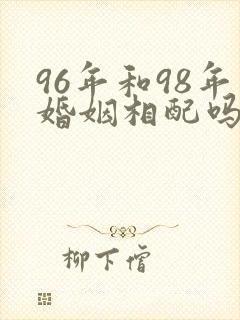 96年和98年
婚姻相配吗
柳下僧